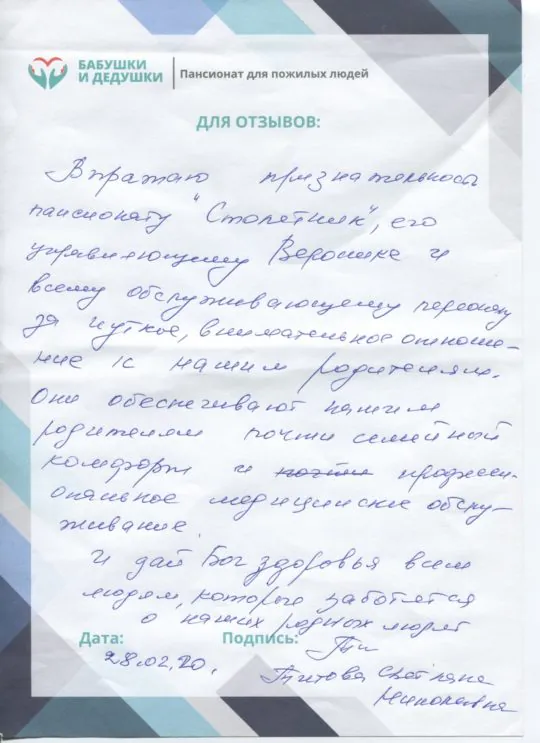 БАБУШКИ
И ДЕДУШКИ
Пансионат для пожилых людей
ДЛЯ ОТЗЫВОВ:
Выражаю признательность
пансионату "Столетник", его
управляющему Веронике и
всему обслуживающему персоналу
за чуткое, внимательное отноше-
ние к нашим родителям.
Они обеспечивают нашим
родителям почти семейный
комфорт и почти професси-
ональное медицинское обслу-
живание.
И дай Бог здоровья всем
людям, которые заботятся
о наших родных людях
Дата:
Подпись:
28.02.20.
Титова Светлана
Николаевна